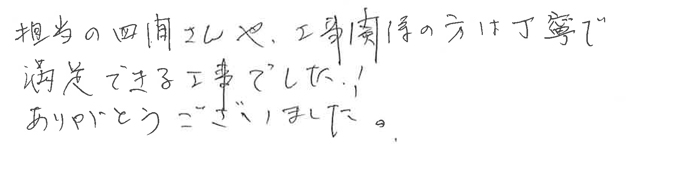 担当の四間さんや、工事関係の方は丁寧で
満足できる工事でした！
ありがとうございました。